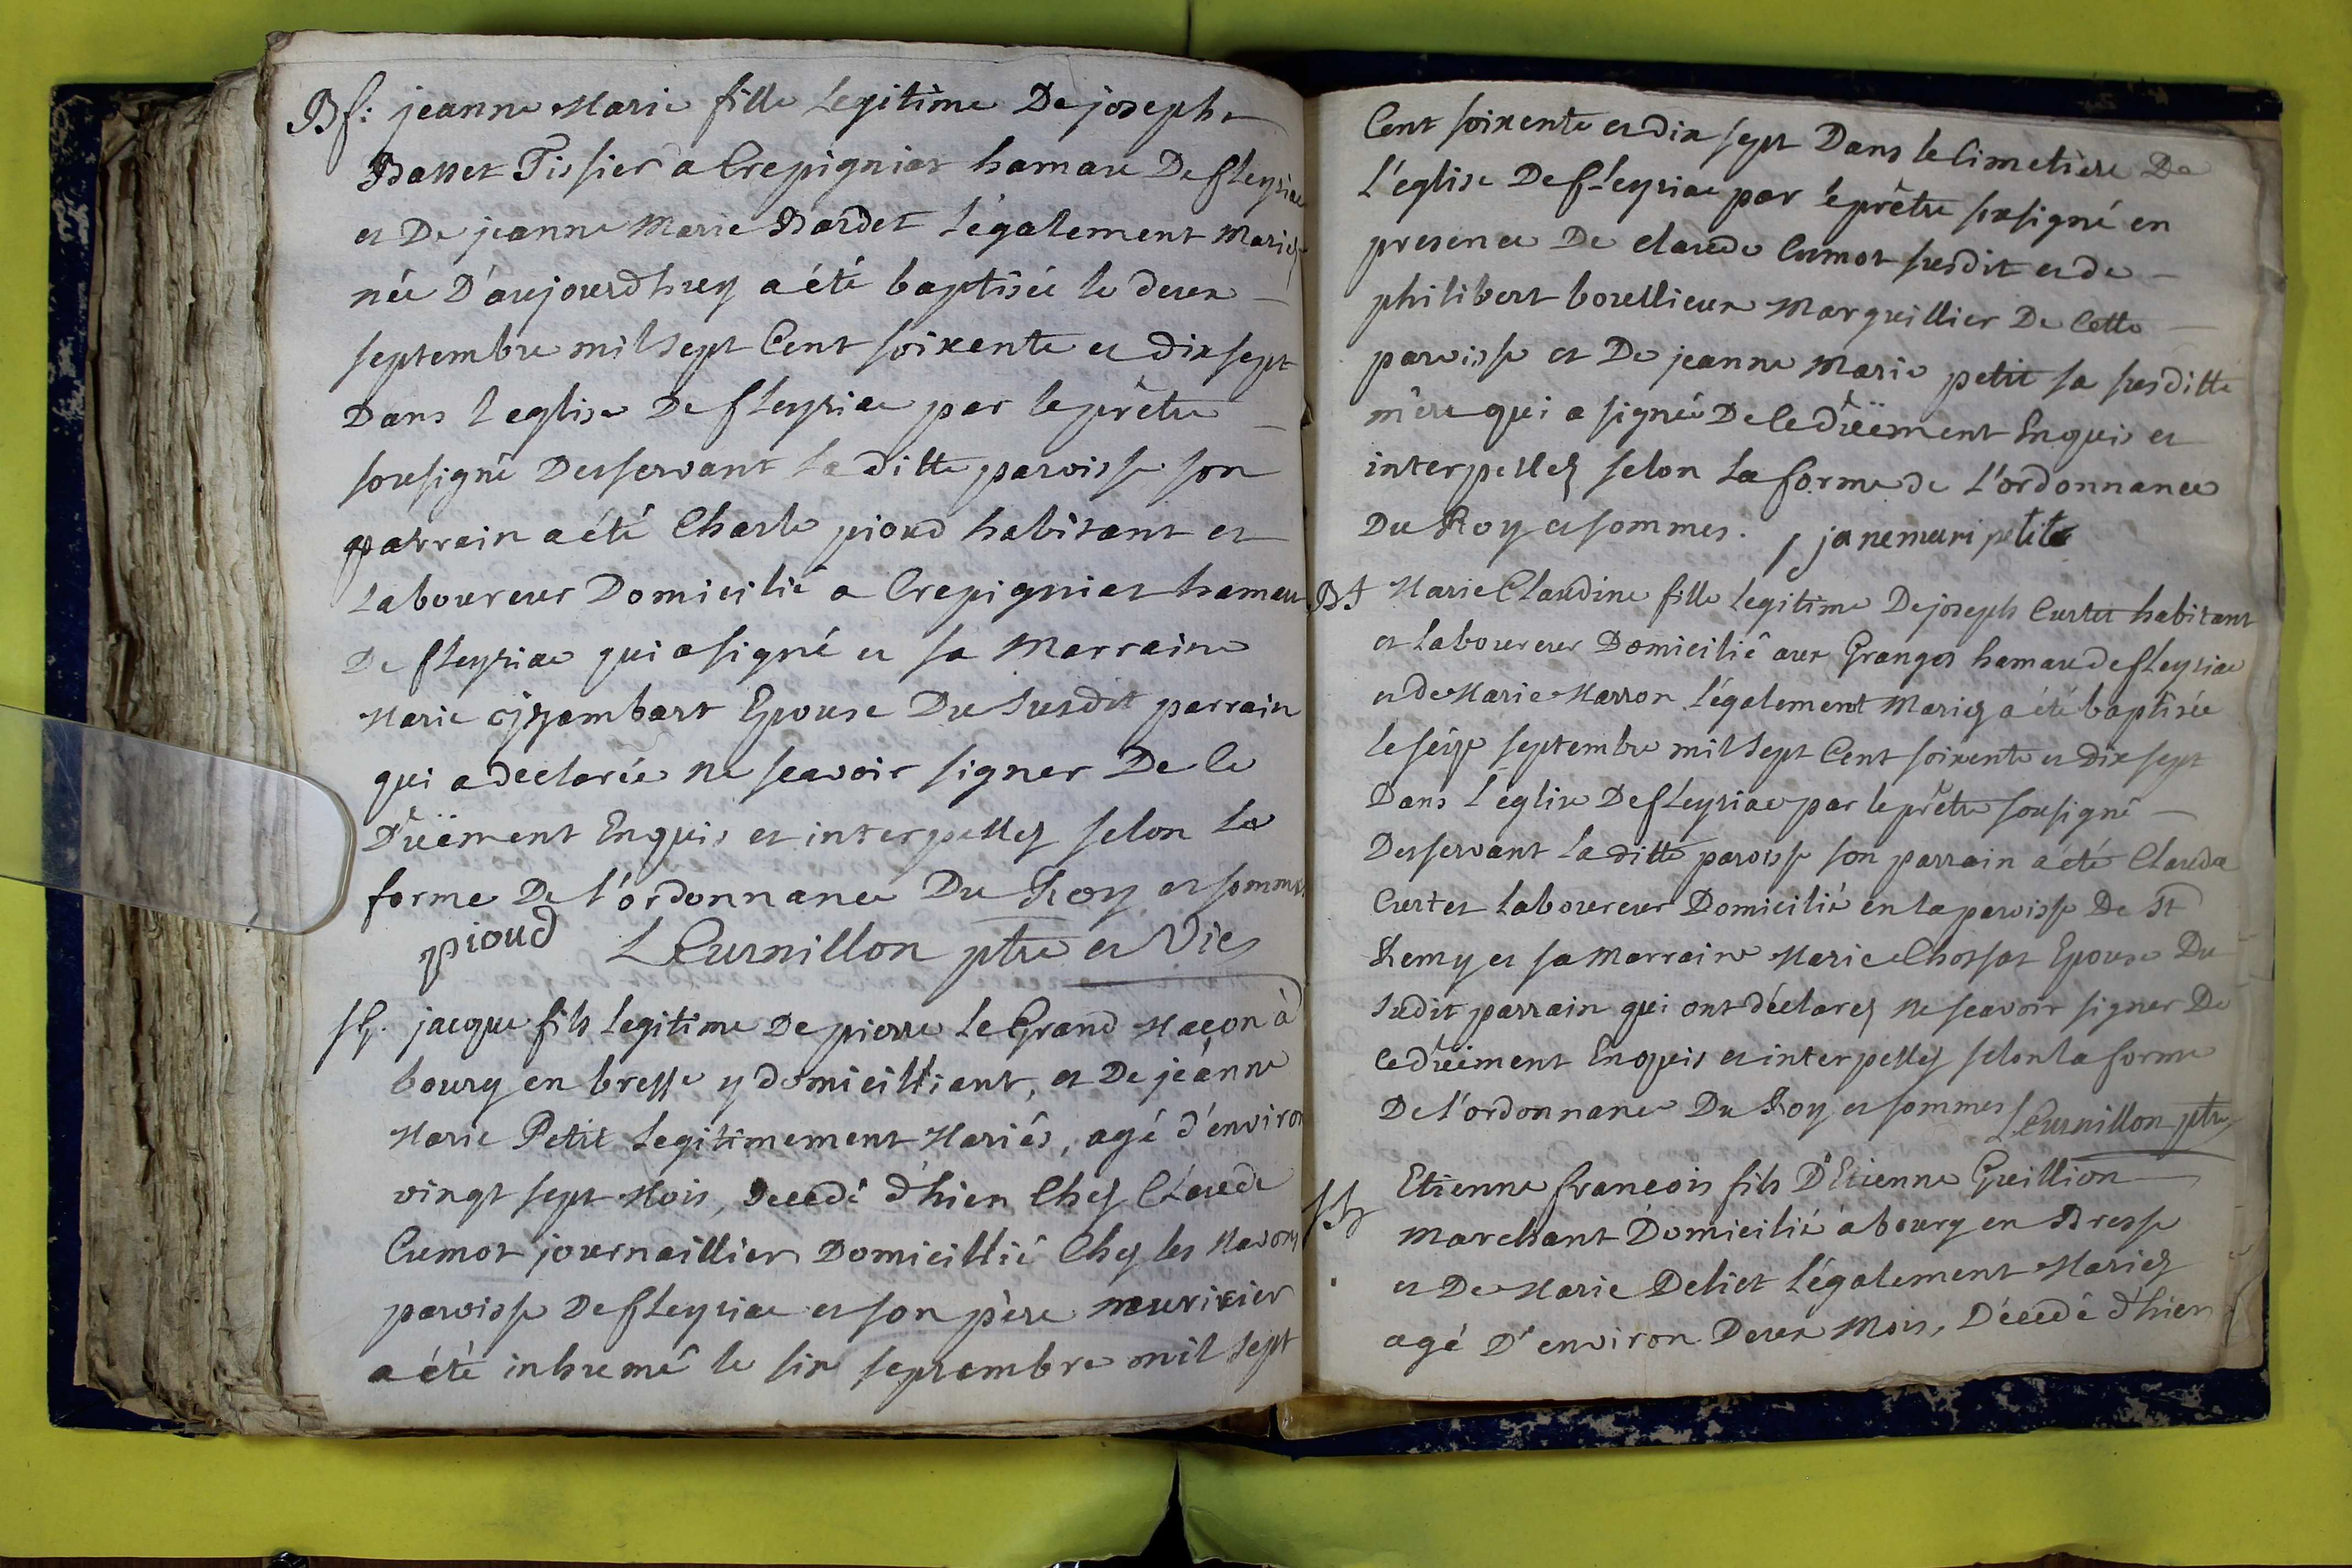 Bf: jeanne Marie fille Legitime De joseph
Basset Tissier a Crepigniat hamau De fleyriac
et De jeanne Marie Bardet légalement Mariez
née D'aujourdhuy a été baptisée le deux
septembre mil sept Cent soixente et dix sept
Dans l'eglise De fleyriac par le prêtre
sousigné Desservant La ditte paroisse son
parrain a été Charle pioud habitant et
Laboureur Domicilié a Crepigniat hamau
De fleyriac qui a signé et sa Marraine
Marie Epouse Du Susdit parrain
qui a declarée ne scavoir signer De ce
Düëment Enquis et interpellez selon la
forme De l'ordonnance Du Roy et sommes
pioud LCurnillon ptre et Vic
SG. jacque fils Legitime De pierre Le Grand Maçon à
bourg en bresse y domicilliant, et De jeanne
Marie Petit Legitimement Mariés, agé d'environ
vingt sept Mois, Decedé d'hier Chez Claude
Cumot journaillier Domicillié Chez les Mavons
paroisse De fleyriac et son père nourricier
a été inhumé le six septembre mil sept
Cent soixente et dix sept Dans le Cimetiere De
L'eglise De fleyriac par le prêtre susigné en
presence De claude Cumot susdit et de
philibert bouillieux Marguillier De Cette
paroisse et De jeanne Marie petit sa susditte
mère qui a signée De ce düëment Enquis et
interpellez selon La forme de L'ordonnance
Du Roy et sommes. janemari petit
Bf Marie Claudine fille Legitime De joseph Curtet habitant
et Laboureur Domicilié aux Granges hamau de fleyriac
et de Marie Marron légalement Mariez a été baptisée
le seize septembre mil sept Cent soixente et dix sept
Dans l'église De fleyriac par le prêtre sousigné
Desservant La ditte paroisse son parrain a été Claude
Curtet Laboureur Domicilié en la paroisse De St
Remy et sa Marraine Marie Chossat Epouse Du
Sudit parrain qui ont déclarez ne scavoir signer De
ce düëment Enquis et interpellez selon la forme
De l'ordonnance Du Roy et sommes LCurnillon ptre
SG Etienne francois fils D'Etienne Guillion
Marchant Domicilié a bourg en Bresse
et De Marie Deliet légalement Mariez
agé D'environ Deux Mois, Décedé d'hier